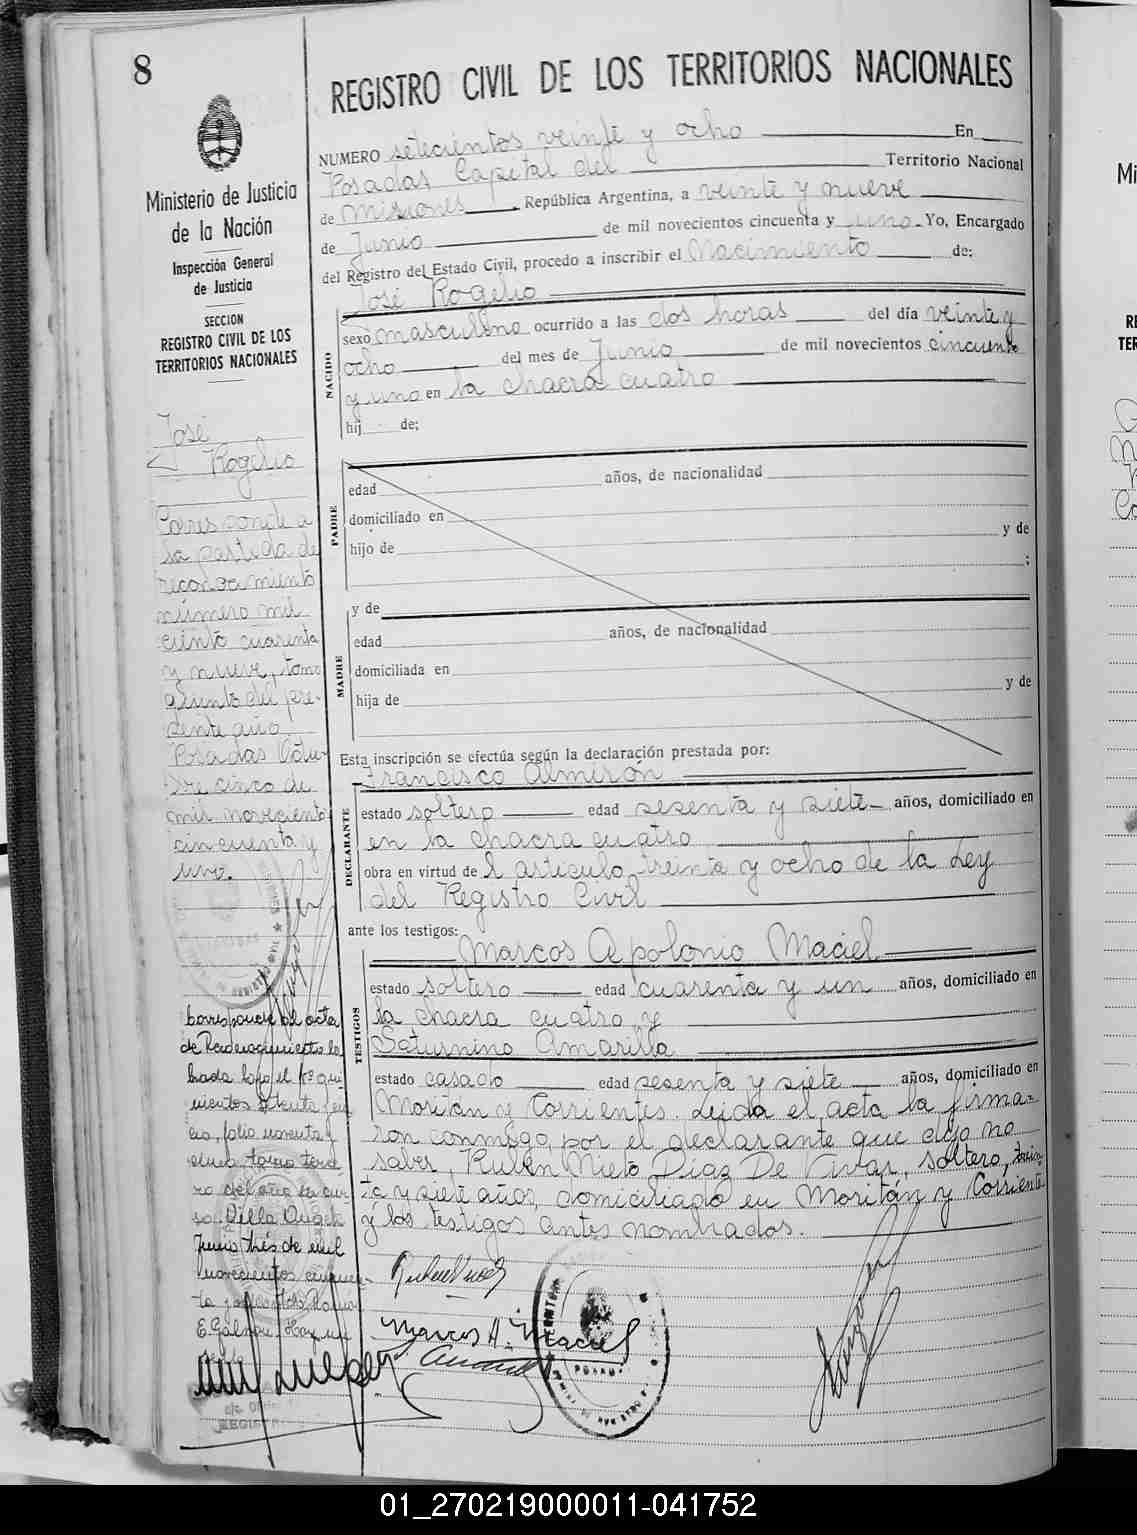 8
REGISTRO CIVIL DE LOS TERRITORIOS NACIONALES
Ministerio de Justicia
de la Nación
Inspección General
de Justicia
SECCION
REGISTRO CIVIL DE LOS
TERRITORIOS NACIONALES
José
Rogelio
Corresponde a
la partida de
reconocimiento
número mil
ciento cuarenta
y nueve, tomo
quinto del pre-
sente año
Posadas Octu-
bre cinco de
mil novecientos
cincuenta y
uno.
Corresponde al acta
de Reconocimiento la-
brada bajo el Nº qui
nientos setenta
folio noventa y
cinco, tomo terce
ro del año en cur
so. Villa Angela
Junio trés de mil
novecientos cincuen-
ta
NUMERO setecientos veinte y ocho En
Posadas Capital del Territorio Nacional
de Misiones, República Argentina, a veinte y nueve
de Junio de mil novecientos cincuenta y uno. Yo, Encargado
del Registro del Estado Civil, procedo a inscribir el Nacimiento de:
José Rogelio
NACIDO
sexo masculino ocurrido a las dos horas del día veinte y
ocho del mes de Junio de mil novecientos cincuenta
y uno en la chacra cuatro
hij de:
PADRE
edad años, de nacionalidad
domiciliado en
hijo de y de
;
y de
MADRE
edad años, de nacionalidad
domiciliada en
hija de y de
Esta inscripción se efectúa según la declaración prestada por:
Francisco Almirón
DECLARANTE
estado soltero edad sesenta y siete años, domiciliado en
en la chacra cuatro
obra en virtud del artículo treinta y ocho de la Ley
del Registro Civil
ante los testigos:
Marcos Apolonio Maciel
TESTIGOS
estado soltero edad cuarenta y un años, domiciliado en
la chacra cuatro y
Saturnino Amarilla
estado casado edad sesenta y siete años, domiciliado en
Moritán y Corrientes. Leida el acta la firma-
ron conmigo, por el declarante que dijo no
saber, Rubén Nieto Díaz De Vivar, soltero, trein-
ta y siete años, domiciliado en Moritán y Corrientes
y los testigos antes nombrados.
Marcos A. Maciel
01_270219000011-041752